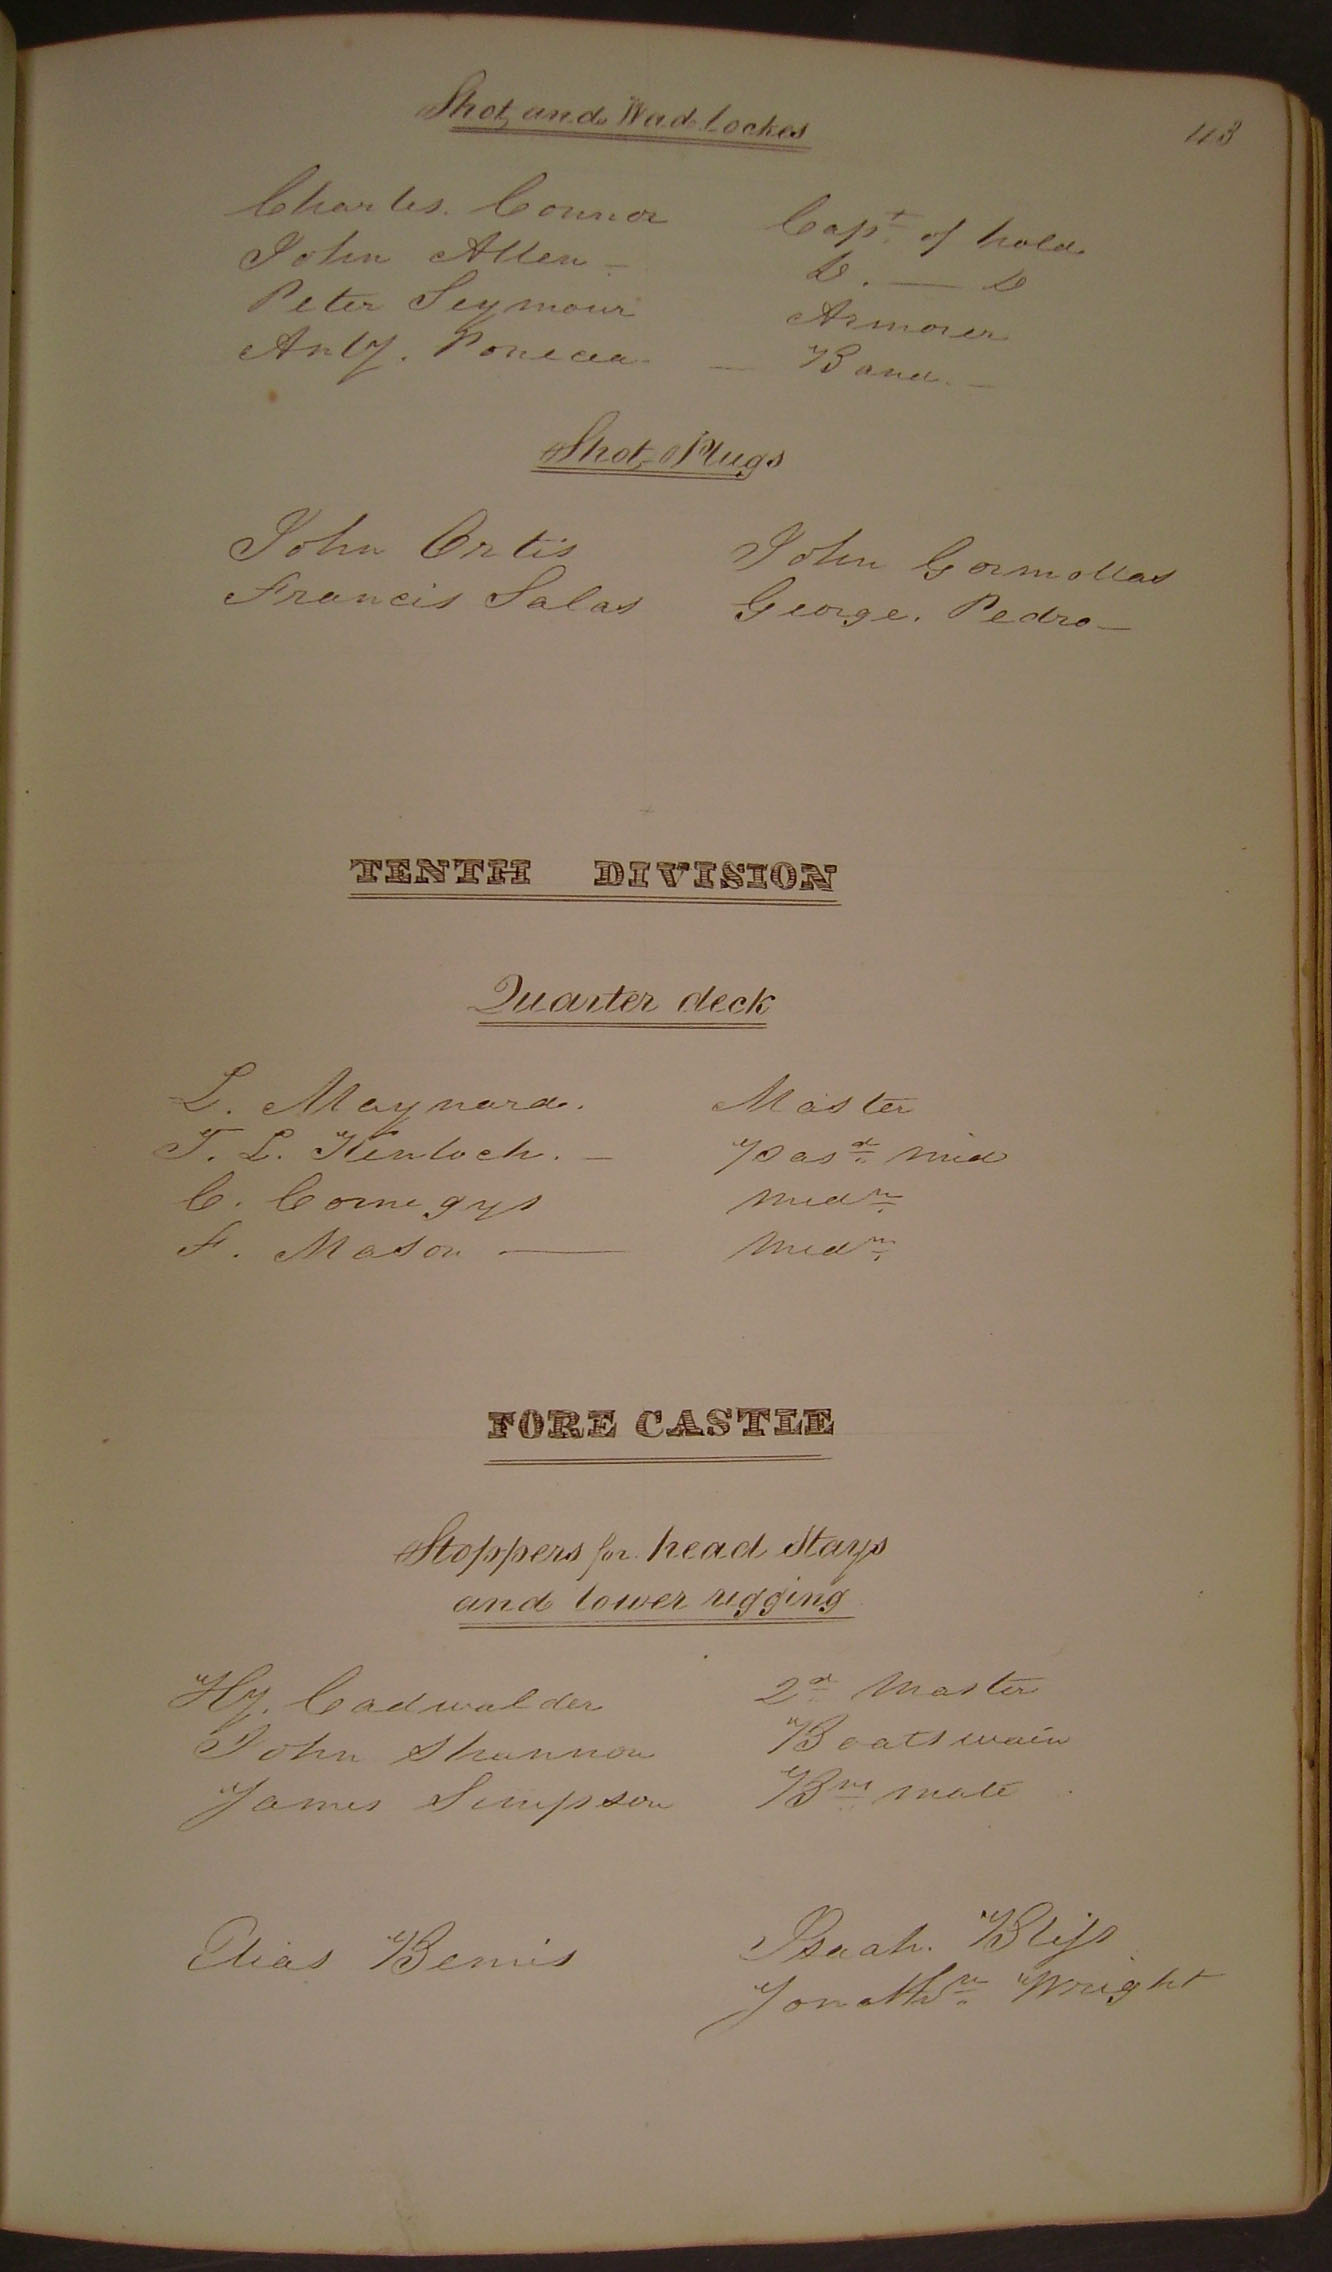 113
Shot and Wad lockes
Charles. Connor Capt. of hold
John Allen – D. — D
Peter Seymour Armorer
Anty. – Band. –
Shot Plugs
John Ortis John Gormollas
Francis Salas George. Pedro –
TENTH DIVISION
Quarter deck
L. Maynard. Master
T. L. Kinloch. – Pasd mid
C. Comegys Midn
F. Mason — Midn
FORE CASTLE
Stoppers for head Stays
and lower rigging
Hy. Cadwalder 2d Master
John Shannon Boatswain
James Simpson Bns mate
Elias Bemis Isaah. Bliss
Jonathn Wright